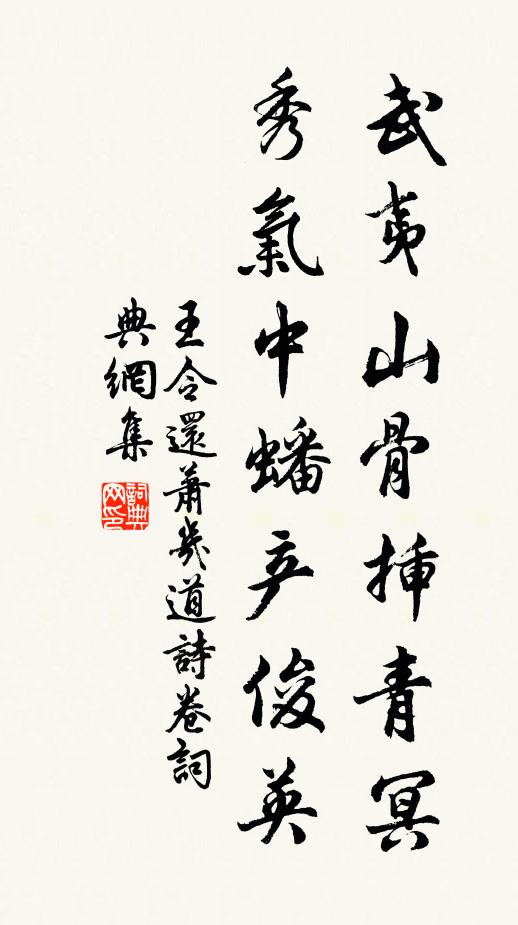 武夷山骨插青冥
秀氣中蟠产俊英
王令還蕭幾道詩卷詞
典網集
詞典网印